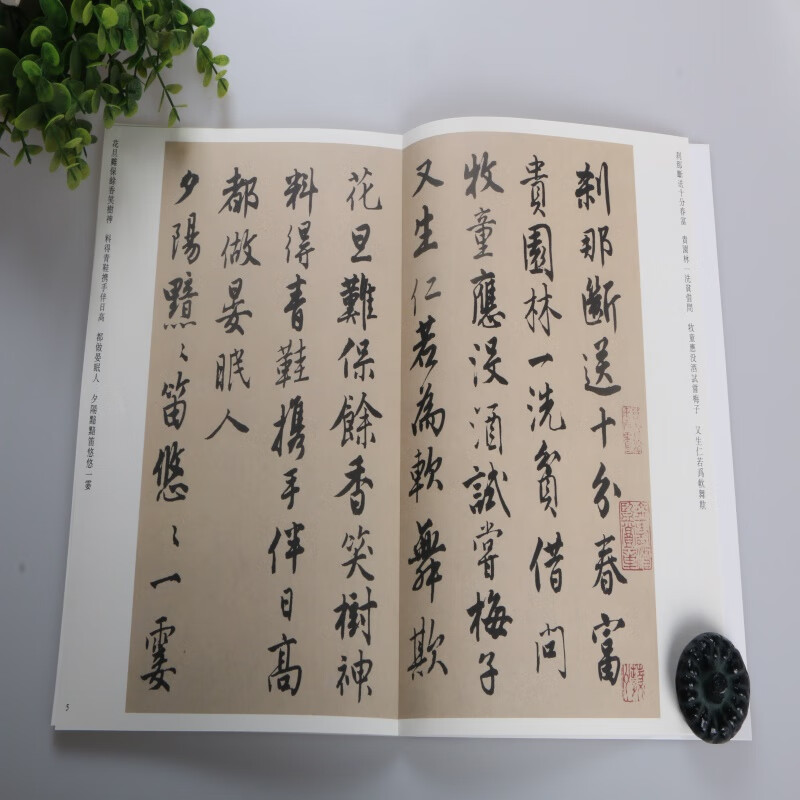 刹那斷送十分春富
貴園林一洗貧借問
牧童應没酒試嘗梅子
又生仁若為軟舞欺
花旦難保餘香笑樹神
料得青鞋携手伴日高
都做晏眠人
夕陽黯〻笛悠〻一霎
刹那斷送十分春富　貴園林一洗貧借問　牧童應没酒試嘗梅子　又生仁若爲軟舞欺
花旦難保餘香笑樹神　料得青鞋携手伴日高　都做晏眠人　夕陽黯黯笛悠悠一霎
5